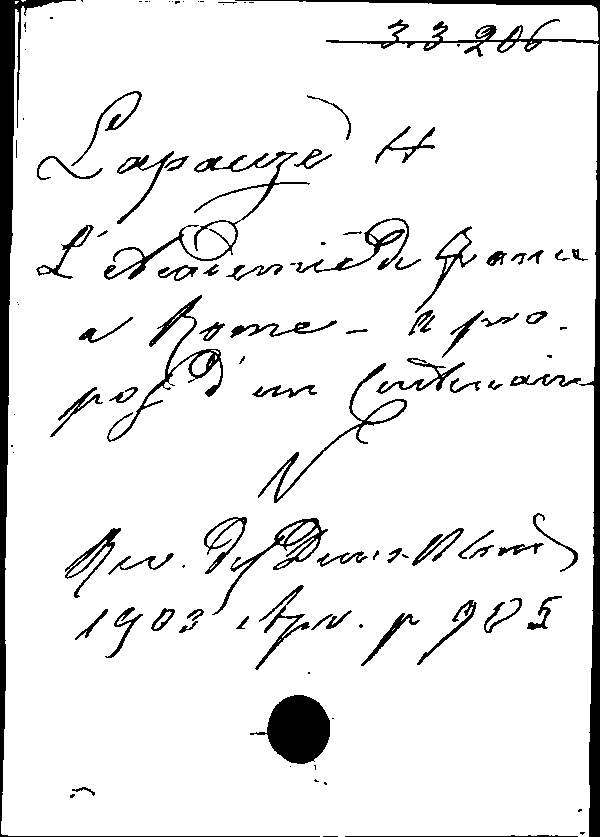 3.3.206
Lapauze H
L'Academie de France
a Rome - a pro-
pos d'un Centenaire
Rev. des Deux-Mond
1903 Apr. p 905